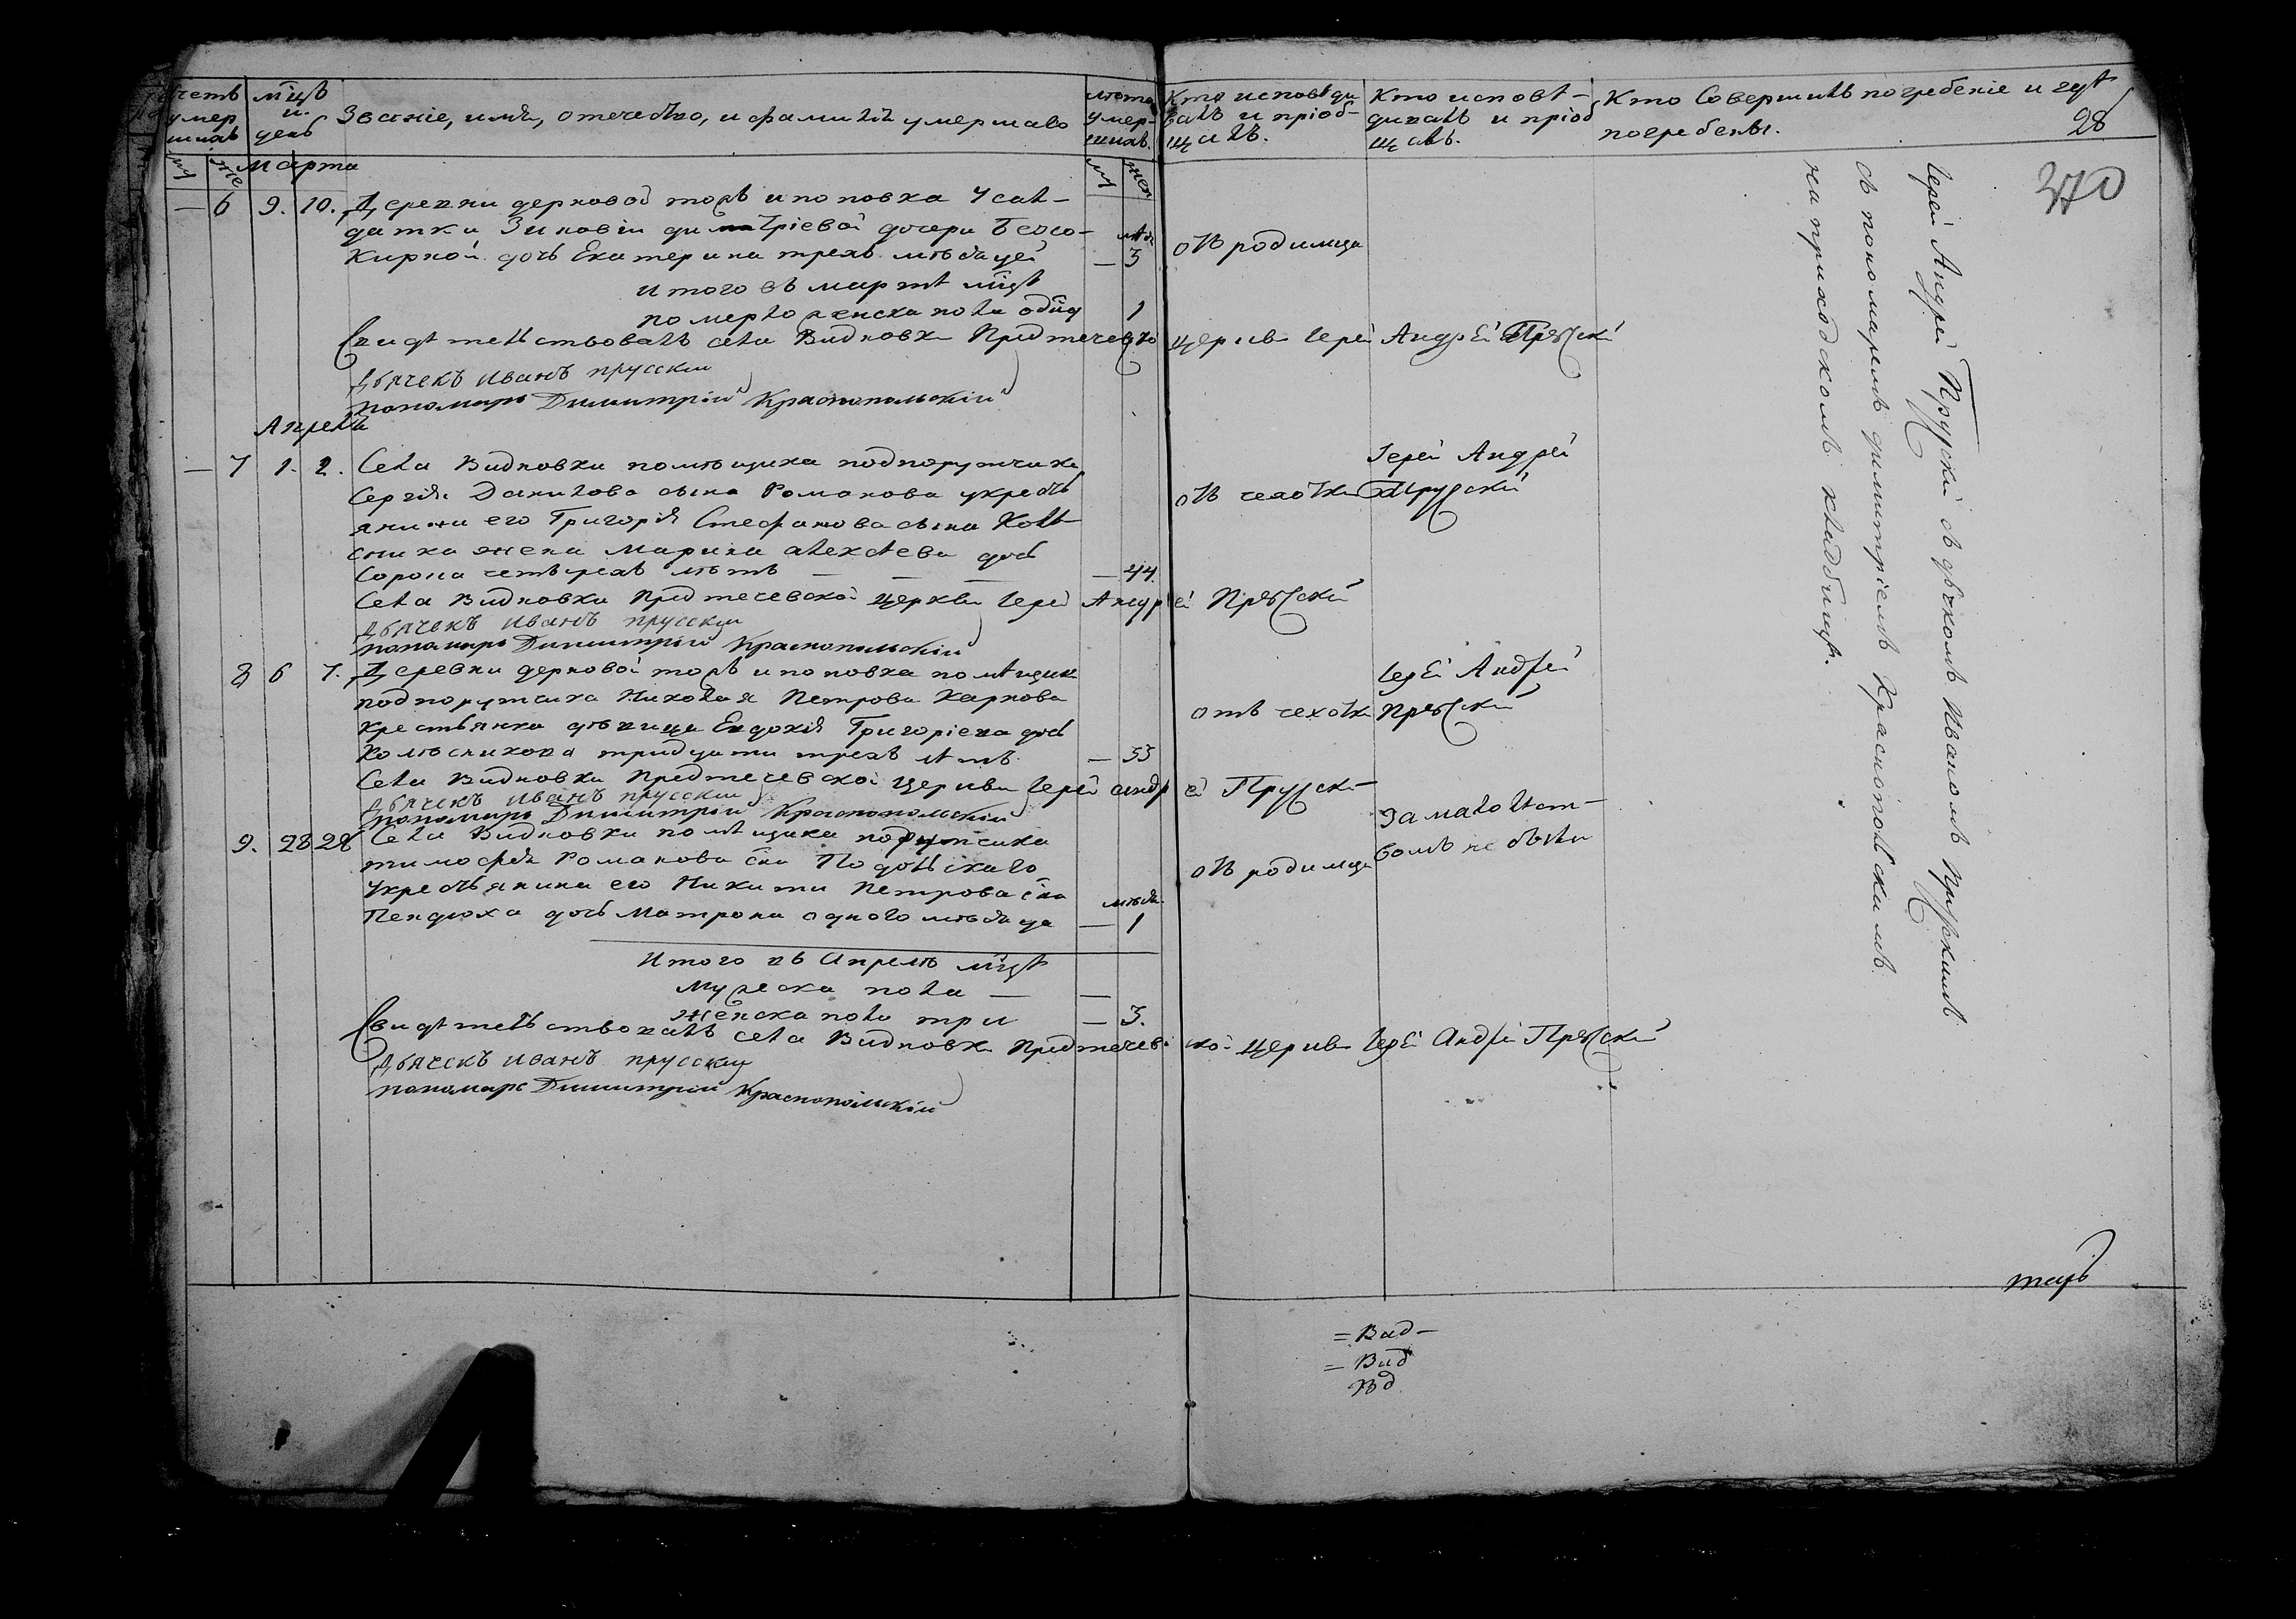 счетъ умершихъ
мцъ и день
Званіе, имя, отечество, и фамилія умершаго
лета умершихъ
Кто исповѣдывалъ и пріобщалъ.
Кто исповѣдывалъ и пріобщалъ.
Кто Совершилъ погребеніе и гдѣ погребены.
28
370
Марта
— 6 9. 10. Деревни дерновой тожъ и поповка Усал-
датки Зиновіи Димитріевой дочери Бело-
Кирной дочь Екатерина трехъ мѣсяцей — 3 отъ родимца
итого въ мартѣ мцѣ
померло женска пола одна 1
Свидѣтельствовалъ села Видновки Предтечевской церкви Іерей Андрей Прускій
Дьячекъ Иванъ прускій
пономарь Димитрій Краснопольскій
Апреля
— 7 1. 2. Села Видновки помѣщика подпоручика
Сергѣя Данилова сына Романова укресть
янина его Григорія Стефанова сына Кол-
сника жена Марина алексѣева дочь
Сорока четырехъ лѣтъ — — — — 44.
отъ чехотки
Іерей Андрей Прускій
Села Видновки Предтечевской церкви Іерей Андрей Прускій
Дьячекъ Иванъ прускій
пономарь Димитрій Краснопольскій
8 6 7. Деревни дерновой тожъ и поповка помѣщика
подпоручика Николая Петрова Карпова
крестьянка дѣвица Евдокія Григоріева дочь
Колѣсникова тридцати трехъ лѣтъ — 33
отъ чехотки
Іерей Андрей Прускій
Села Видновки Предтечевской церкви Іерей андрей Прускій
Дьячекъ Иванъ прускій
пономарь Димитрій Краснопольскій
9. 28 28 Села Видновки помѣщика поручика
тимофея Романова сна Подольскаго
укрестьянина его Никити Петрова сна
Пендюха дочь Матрона одного мѣсяца — 1
отъ родимца
За малолѣт-
вомъ не была
Итого въ Апрелѣ мцѣ
Мужеска пола — —
Женска пола три — 3.
Свидѣтельствовалъ села Видновки Предтечевской церкви Іерей Андрей Прускій
Дьячекъ Иванъ прускій
пономарь Димитрій Краснопольскій
Іерей Андрей Прускій съ дьячкомъ Иваномъ Прускимъ
съ пономаремъ димитріемъ Краснопольскимъ
на приходскомъ кладбищѣ.
= Вид —
= Вид
Вд